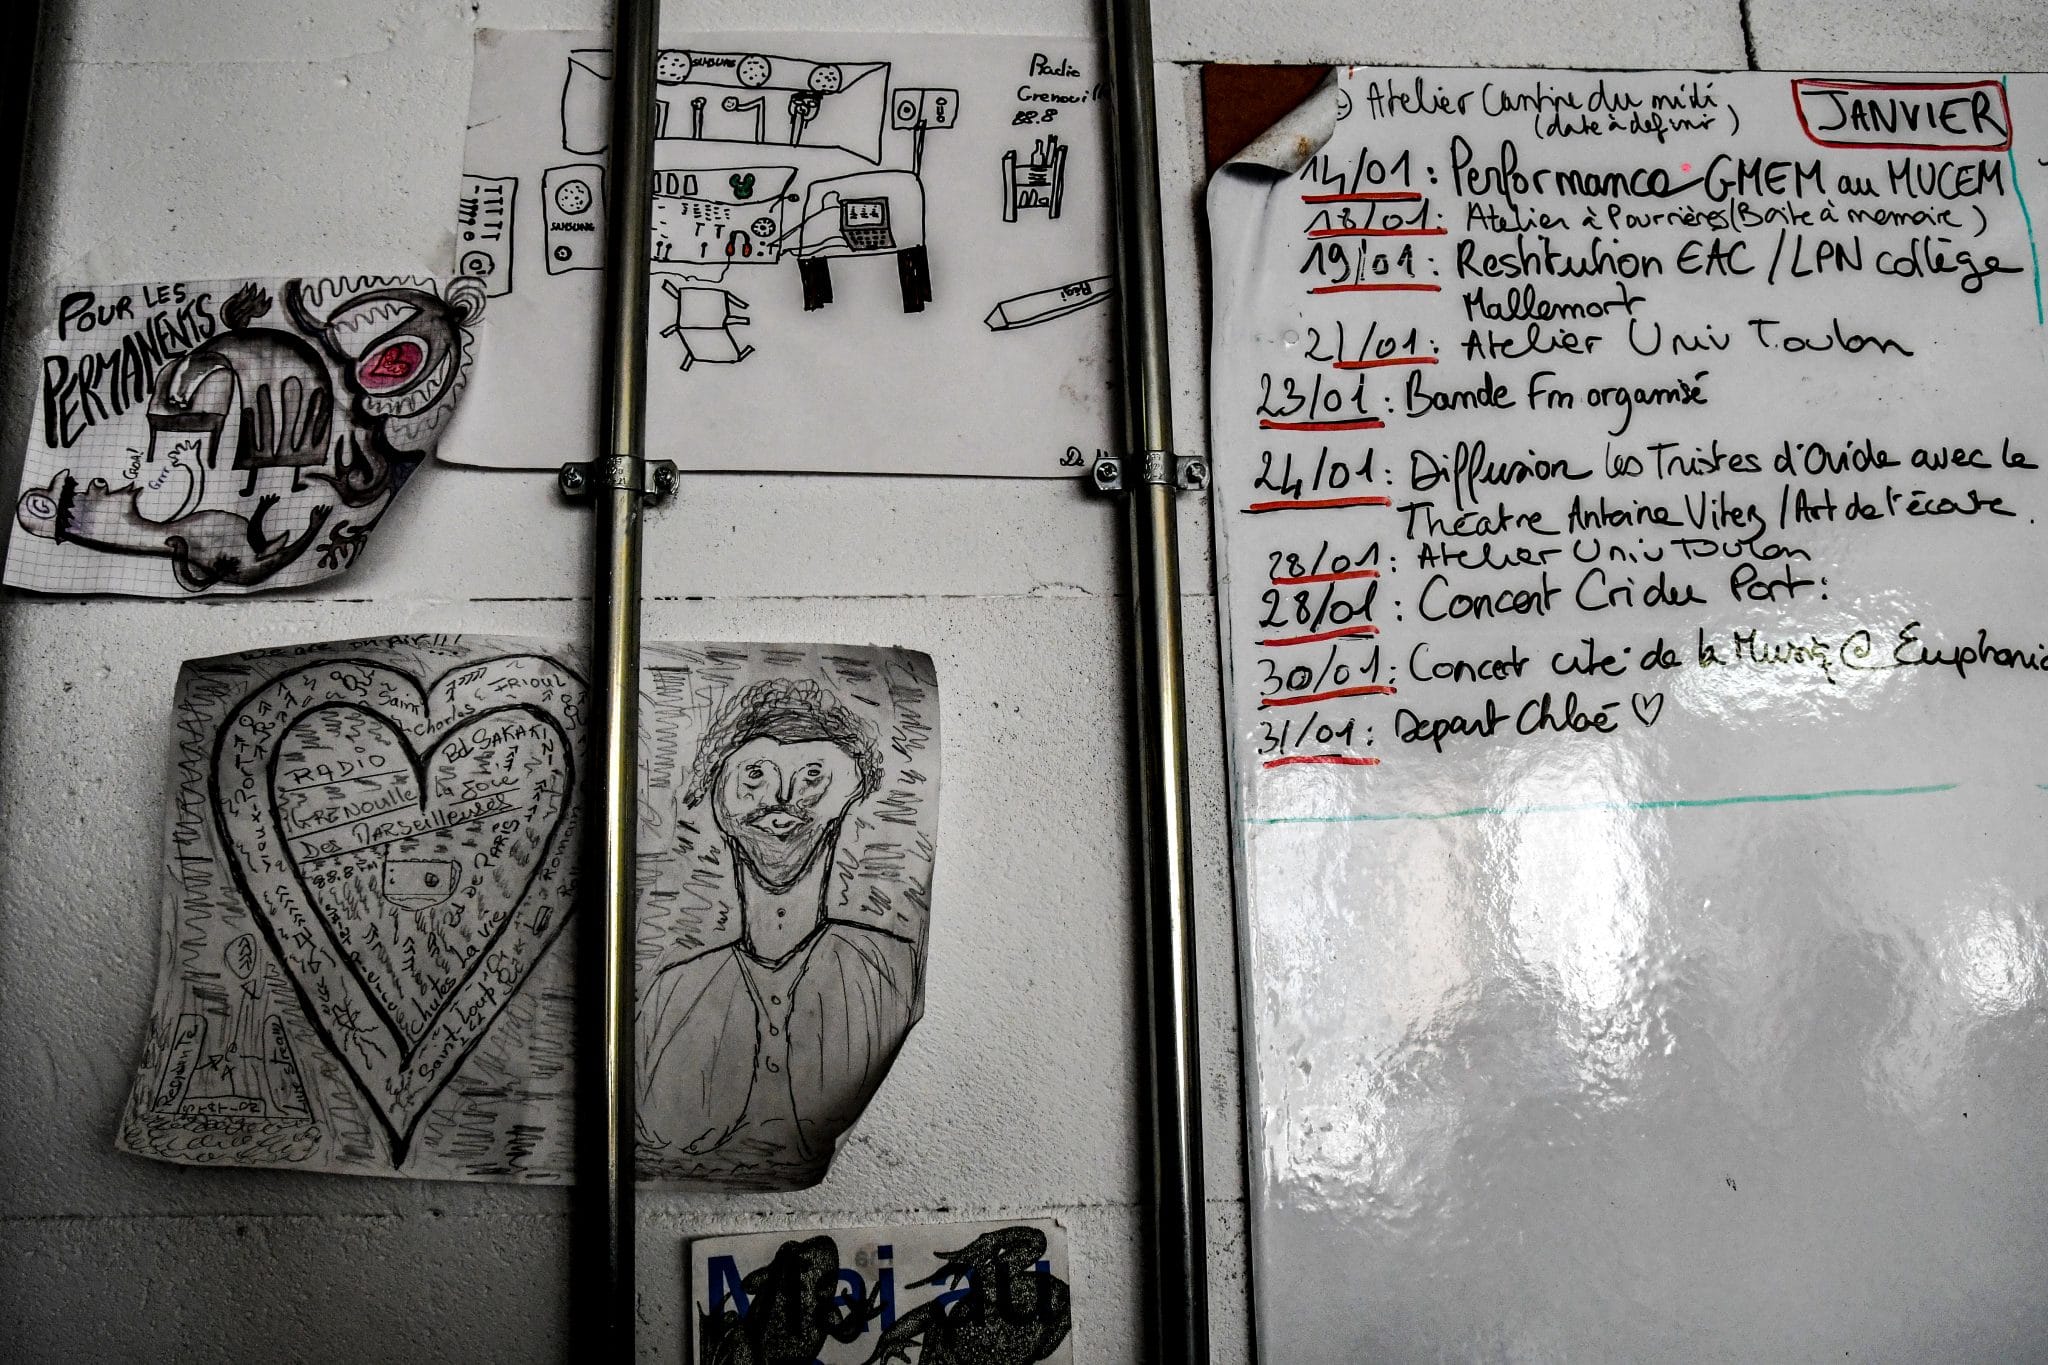 Radio
Grenouil
88.8
SAMSUNG
SAMSUNG
Régi
De
POUR LES
PERMANENTS
CROA!
Grrr
G
we are on air!!!
Saint
Charles
FRIOUL
Vieux-PORT
Bd SAKAKINI
RADIO
GRENOUILLE
Joie
Des MARSEILLEUSES
88.8 FM
Bd DE PARIS
La vie
Chutes
Saint-Loup
Romain
Live stream
Mai au
Atelier Cantine du midi
(date à definir)
JANVIER
14/01 : Performance GMEM au MUCEM
18/01 : Atelier à Pourrières (Boite à memoire)
19/01 : Restitution EAC / LPN collège
Mallemort
21/01 : Atelier Univ Toulon
23/01 : Bande Fm organisé
24/01 : Diffusion les Tristes d'Ovide avec le
Théatre Antoine Vitez / Art de l'écoute.
28/01 : Atelier Univ Toulon
28/01 : Concert Cri du Port :
30/01 : Concert cité de la Musiq @ Euphonia
31/01 : Depart Chloé ♡